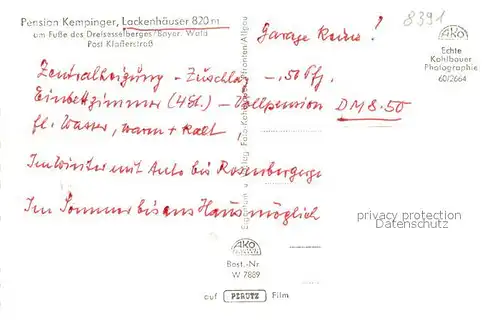 Pension Kempinger, Lackenhäuser 820 m
am Fuße des Dreisesselberges/Bayer. Wald
Post Klafferstraß
8391
Garage keine!
AKO
Echte
Kohlbauer
Photographie
60/2664
Zentralheizung - Zuschlag -.50 Pfg.
Einbettzimmer (4 St.) - Vollpension DM 8.50
fl. Wasser, warm + kalt!
Im Winter mit Auto bis Rosenbergergut
Im Sommer bis ans Haus möglich
privacy protection
Datenschutz
AKO
Best.-Nr
W 7889
auf PERUTZ Film